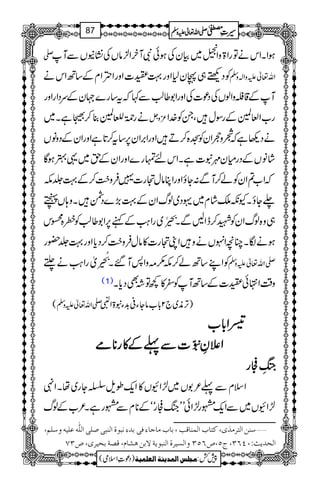 سیرتِ مصطفیٰ صلی اللہ تعالیٰ علیہ وسلم
87
ہوا۔ اس نے توراۃ و انجیل میں بیان کی ہوئی نبی آخر الزماں کی نشانیوں سے آپ صلی
اللہ تعالیٰ علیہ والہ وسلم کو دیکھتے ہی پہچان لیا اور بہت عقیدت اور احترام کے ساتھ اس نے
آپ کے قافلہ والوں کی دعوت کی اور ابو طالب سے کہا کہ یہ سارے جہان کے سردار اور
رب العالمین کے رسول ہیں، جن کو خدا عزوجل نے رحمۃ للعالمین بنا کر بھیجا ہے۔ میں
نے دیکھا ہے کہ شجر و حجر ان کو سجدہ کرتے ہیں اور ابر ان پر سایہ کرتا ہے اور ان کے دونوں
شانوں کے درمیان مہر نبوت ہے۔ اس لئے تمہارے اور ان کے حق میں یہی بہتر ہوگا
کہ اب تم ان کو لے کر آگے نہ جاؤ اور اپنا مال تجارت یہیں فروخت کر کے بہت جلد مکہ
چلے جاؤ۔ کیونکہ ملک شام میں یہودی لوگ ان کے بہت بڑے دشمن ہیں۔ وہاں پہنچتے
ہی وہ لوگ ان کو شہید کر ڈالیں گے۔ بحیریٰ راہب کے کہنے پر ابو طالب کو خطرہ محسوس
ہونے لگا۔ چنانچہ انہوں نے وہیں اپنی تجارت کا مال فروخت کر دیا اور بہت جلد حضور
صلی اللہ تعالیٰ علیہ وسلم کو اپنے ساتھ لے کر مکہ مکرمہ واپس آ گئے۔ بحیریٰ راہب نے چلتے
وقت انتہائی عقیدت کے ساتھ آپ کو سفر کا کچھ توشہ بھی دیا۔ (1)
(ترمذی ج۲ باب ماجاء فی بدء نبوۃ النبی صلی اللہ تعالیٰ علیہ وسلم)
تیسرا باب
اعلانِ نبوت سے پہلے کے کارنامے
جنگِ فجار
اسلام سے پہلے عربوں میں لڑائیوں کا ایک طویل سلسلہ جاری تھا۔ انہی
لڑائیوں میں سے ایک مشہور لڑائی ”جنگ فجار“ کے نام سے مشہور ہے۔ عرب کے لوگ
سنن الترمذی، کتاب المناقب، باب ماجاء فی بدء نبوة النبی صلی الله علیه وسلم،
الحدیث:۳٦٤٠، ج٥، ص۳٥٦ والسیرة النبویة لابن هشام، قصة بحیری، ص۷۳
پیش کش: مجلس المدینۃ العلمیۃ (دعوتِ اسلامی)